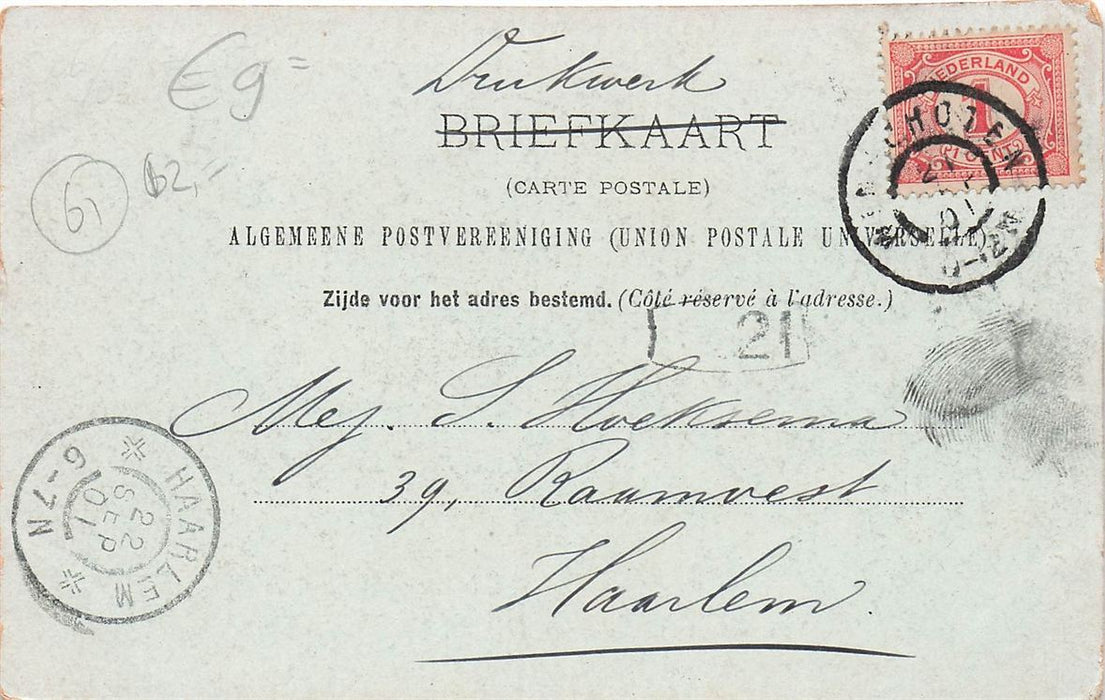 € 9 =
Drukwerk
BRIEFKAART
(CARTE POSTALE)
ALGEMEENE POSTVEREENIGING (UNION POSTALE UNIVERSELLE)
Zijde voor het adres bestemd. (Côté réservé à l'adresse.)
NEDERLAND
1
CENT
CHOTEN
61
62,-
21
Mej. S. Hoeksema
39, Raamvest
Haarlem.
HAARLEM
6-7N
22
SEP
01